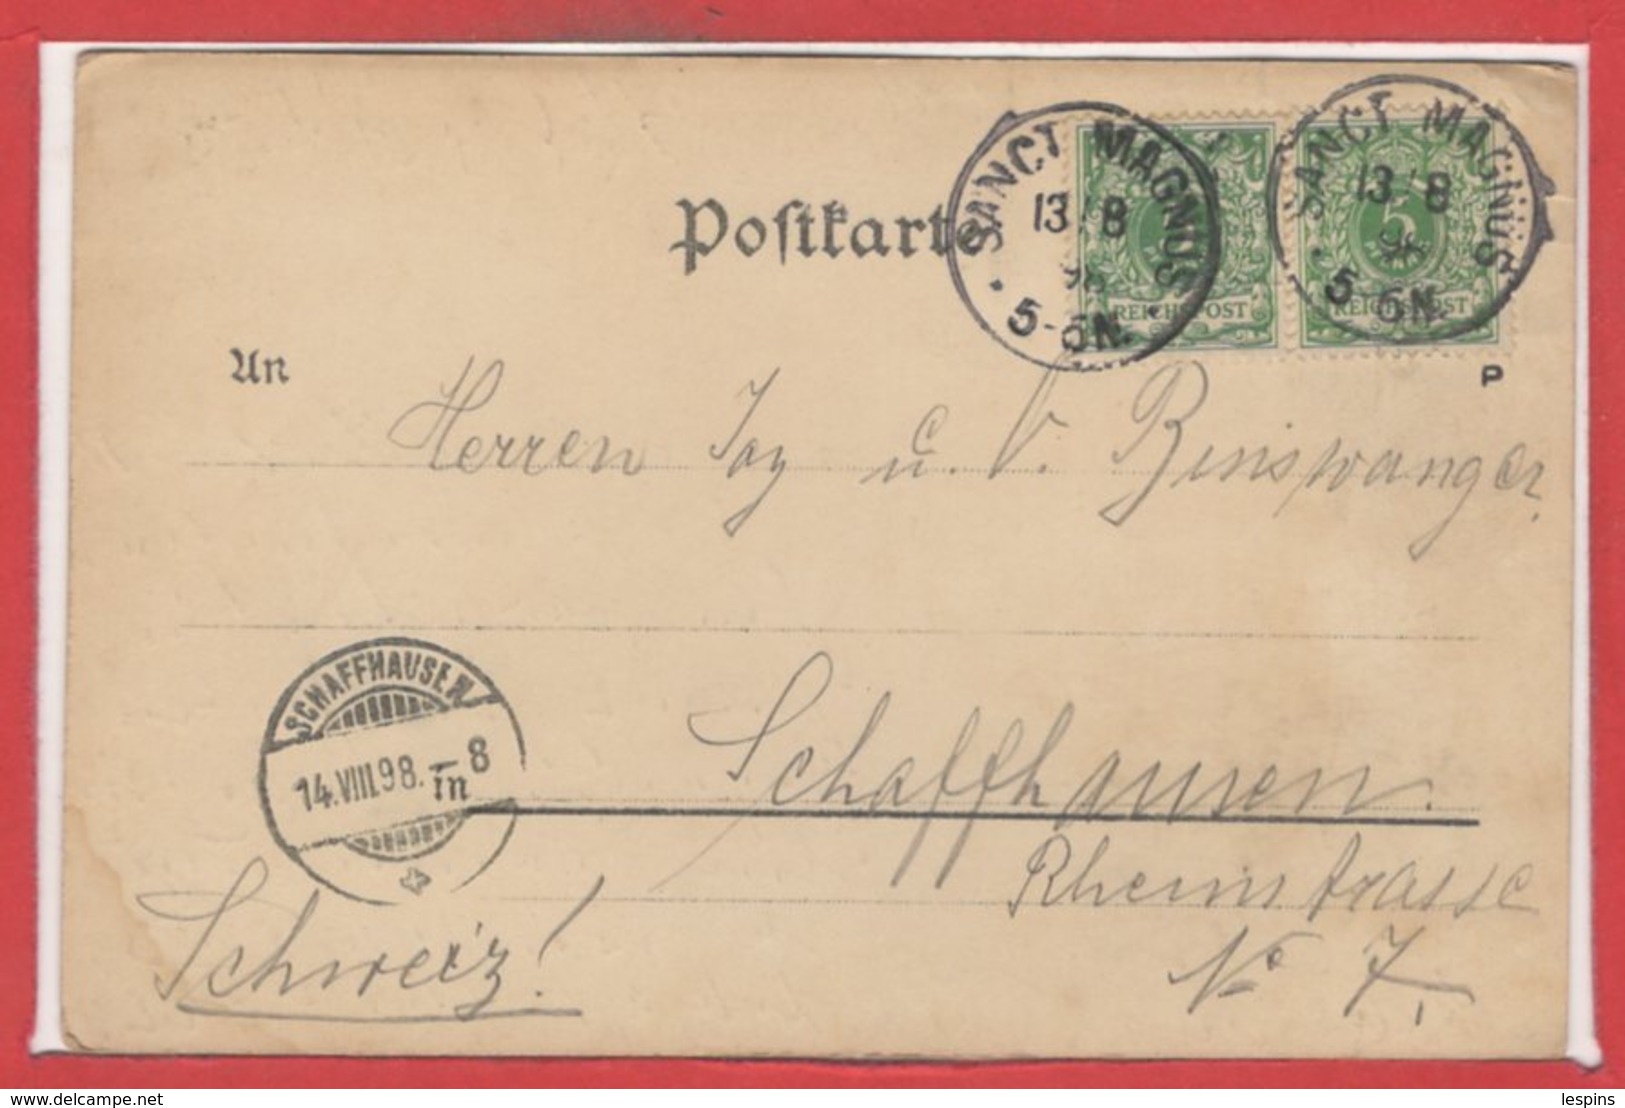 SANCT MAGNUS
13/8
98
5-6N.
SANCT MAGNUS
13/8
98
5-6N.
5
REICHSPOST
REICHSPOST
Postkarte
P
An
Herren Joy u. V. Binswanger,
SCHAFFHAUSEN
14.VIII.98.–8
m
Schaffhausen.
Rheinstrasse
No 7,
Schweiz!
delcampe.net
lespins